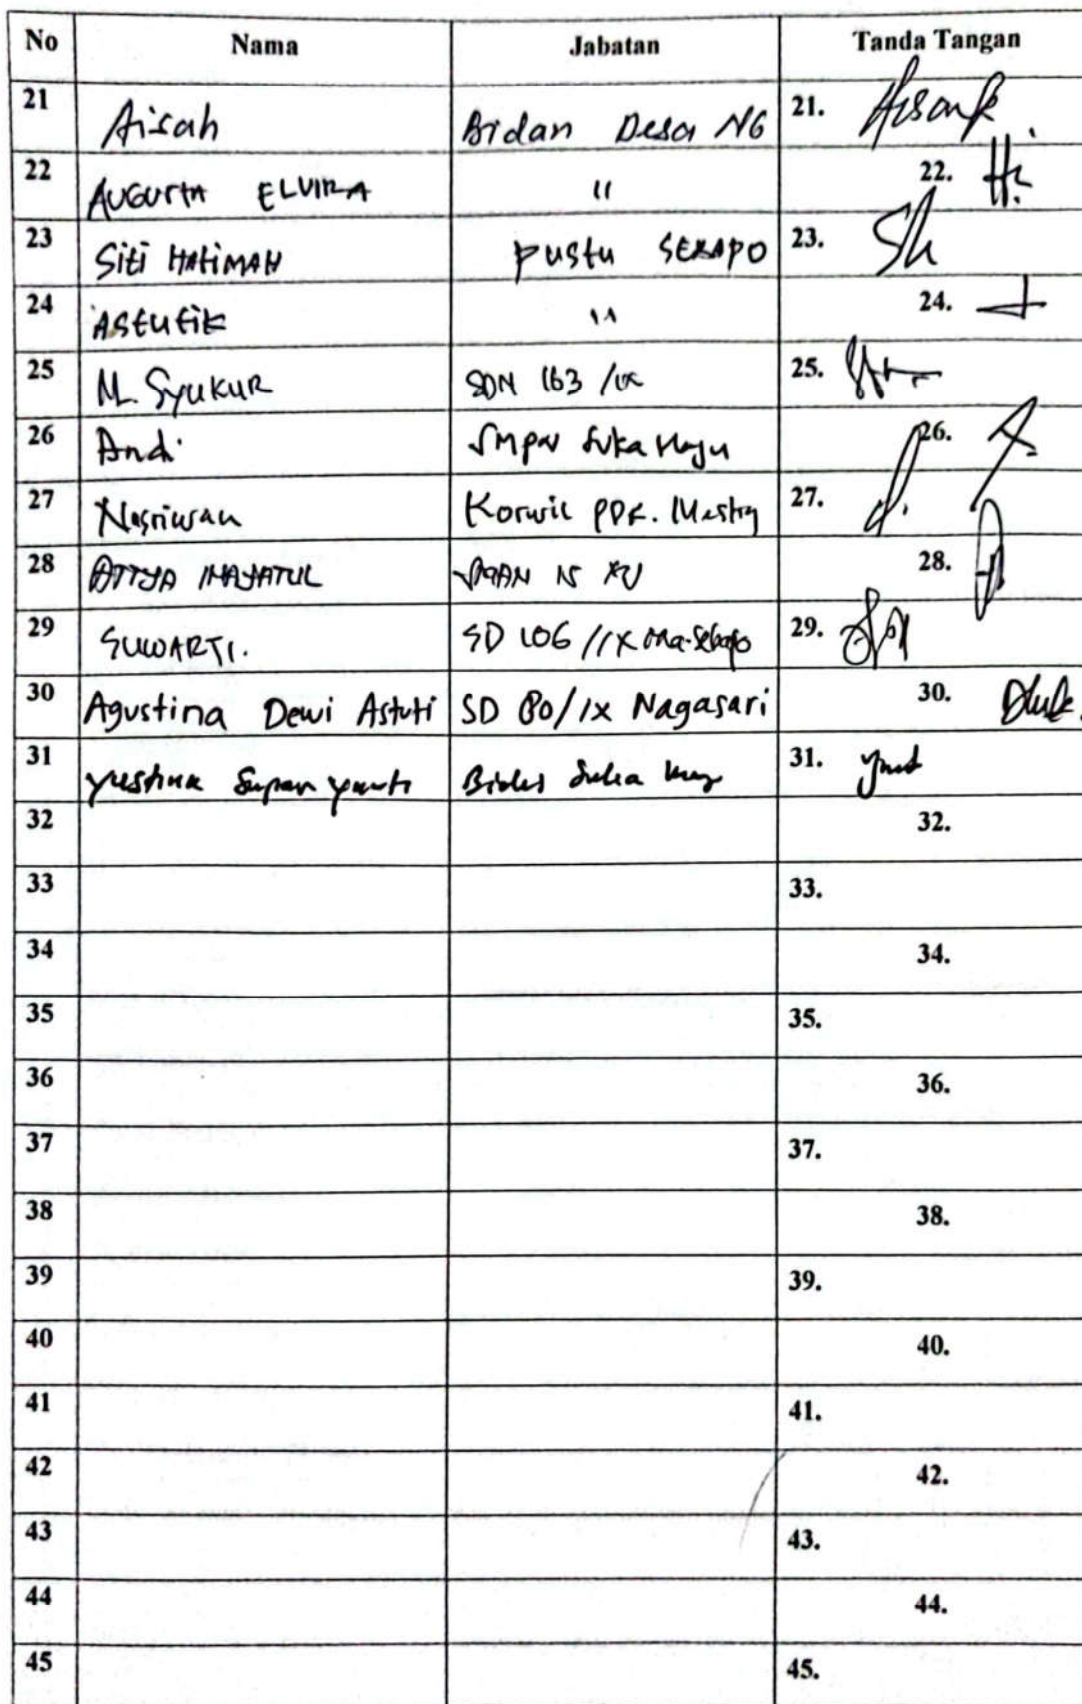 No Nama Jabatan Tanda Tangan
21 Aisah Bidan Desa NG 21. Aisah
22 AUGUSTA ELVIRA " 22.
23 Siti HATIMAH Pustu SEKAPO 23.
24 ASTUTIK " 24.
25 M. SYUKUR SDN 163 /IX 25.
26 Andi Suka Maju 26.
27 Nasriwan Korwil 27.
28 28.
29 SUWARTI. SD 106 /IX 29.
30 Agustina Dewi Astuti SD 80/IX Nagasari 30.
31 31.
32 32.
33 33.
34 34.
35 35.
36 36.
37 37.
38 38.
39 39.
40 40.
41 41.
42 42.
43 43.
44 44.
45 45.